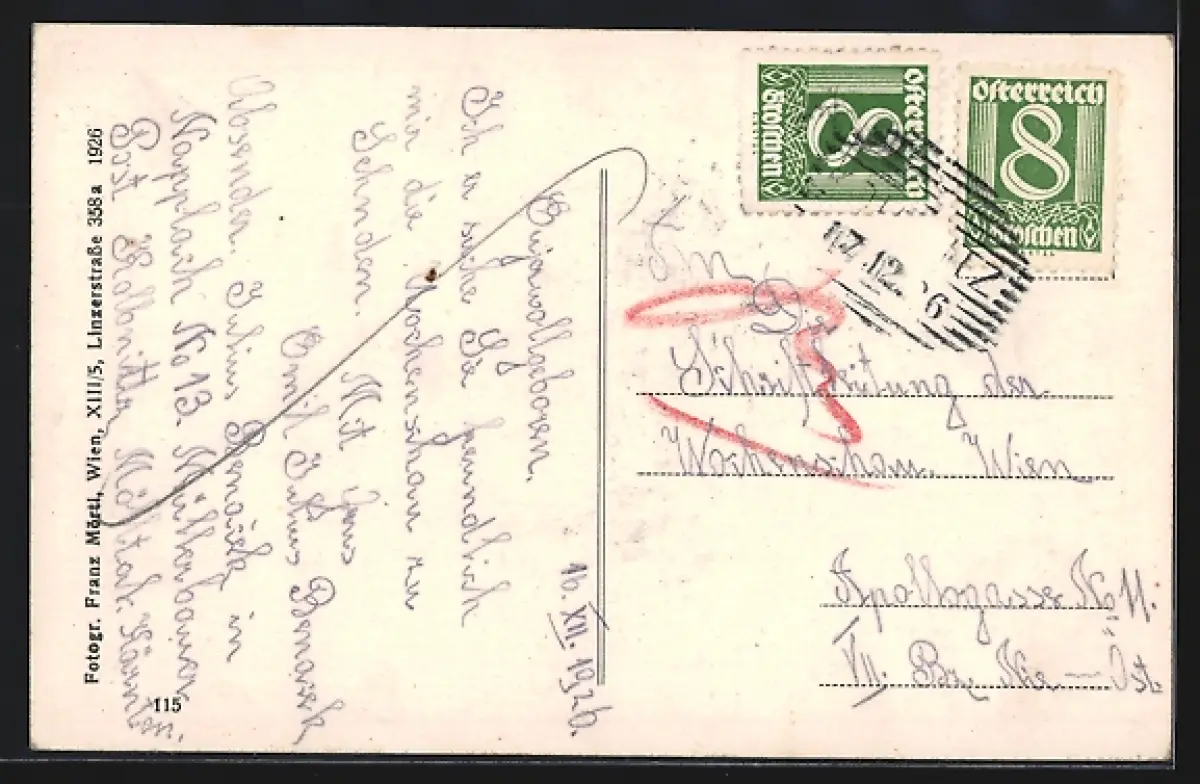 16. XII. 1926.
Euerwollgeboren.
Ich ersuche Sie freundlich
mir die Wochenschau zu
Sehnden.
Mit
Emil Julius
Absender. Julius in
Napplach No 13.
Post Kolbnitz Mölltal. Kärnten.
Fotogr. Franz Mörtl, Wien, XIII/5, Linzerstraße 358a 1926
115
österreich
8
Groschen
österreich
8
Groschen
17.12. 26
An
Die
Schriftleitung der
Wochenschau. Wien
Apollogasse No 11.
VII. Bz. Öst.